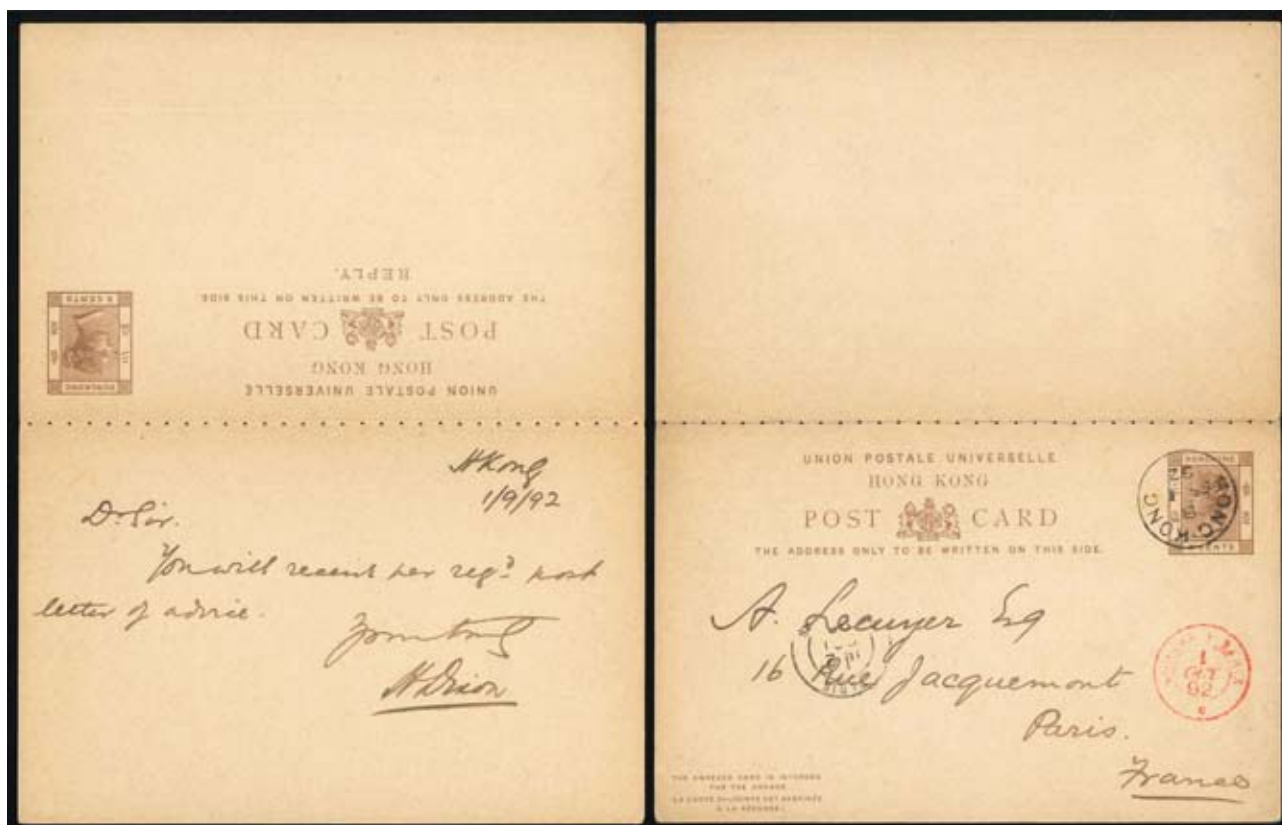 REPLY.
THE ADDRESS ONLY TO BE WRITTEN ON THIS SIDE
POST CARD
HONG KONG
UNION POSTALE UNIVERSELLE
HONG KONG
CENTS
HKong
1/9/92
Dr Sir.
You will receive per regd post
letter of advice.
Yours truly
H Dixon
UNION POSTALE UNIVERSELLE
HONG KONG
POST CARD
THE ADDRESS ONLY TO BE WRITTEN ON THIS SIDE.
HONG KONG
CENTS
A. Lecuyer Esq
16 Rue Jacquemont
Paris.
France
1
OCT
92
THE ANNEXED CARD IS INTENDED
FOR THE ANSWER
LA CARTE CI-JOINTE EST DESTINÉE
À LA RÉPONSE